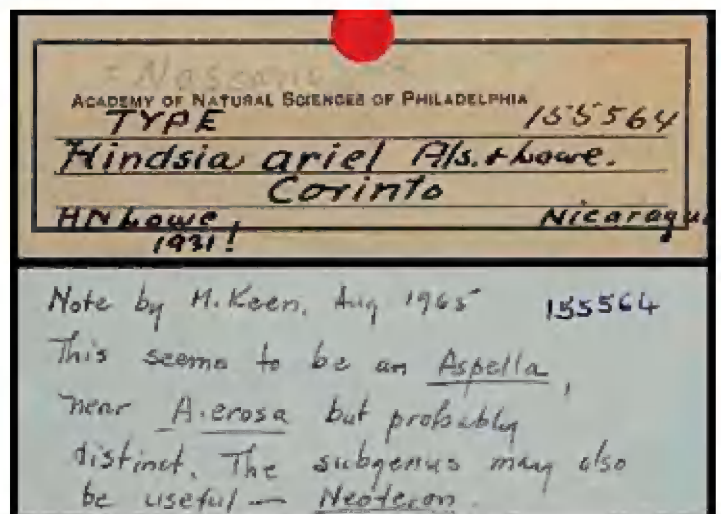 ACADEMY OF NATURAL SCIENCES OF PHILADELPHIA
TYPE 155564
Hindsia ariel A/s. + Lowe.
Corinto
HN Lowe, Nicaragu
1931!
Note by M. Keen, Aug 1965 155564
This seems to be an Aspella,
near A. erosa but probably
distinct. The subgenus may also
be useful —